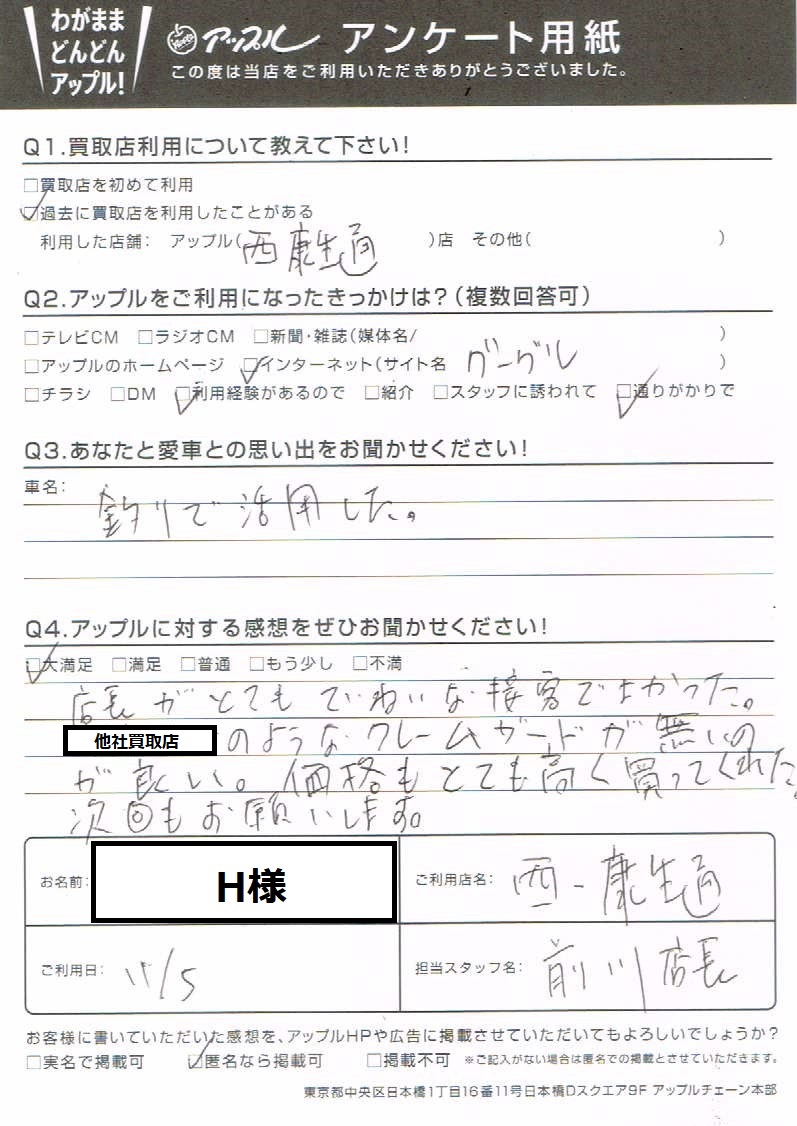 わがまま
どんどん
アップル!
アップル アンケート用紙
この度は当店をご利用いただきありがとうございました。
Q1.買取店利用について教えて下さい!
□買取店を初めて利用
☑過去に買取店を利用したことがある
利用した店舗: アップル(西康生通)店 その他( )
Q2.アップルをご利用になったきっかけは?(複数回答可)
□テレビCM □ラジオCM □新聞・雑誌(媒体名/ )
□アップルのホームページ ☑インターネット(サイト名 グーグル )
□チラシ □DM ☑利用経験があるので □紹介 □スタッフに誘われて ☑通りがかりで
Q3.あなたと愛車との思い出をお聞かせください!
車名:
釣りで活用した。
Q4.アップルに対する感想をぜひお聞かせください!
☑大満足 □満足 □普通 □もう少し □不満
店長がとてもていねいな接客でよかった。
他社買取店のようなクレームガードが無いの
が良い。価格もとても高く買ってくれた。
次回もお願いします。
お名前: H様
ご利用店名: 西-康生通
ご利用日:
担当スタッフ名: 前川店長
お客様に書いていただいた感想を、アップルHPや広告に掲載させていただいてもよろしいでしょうか?
□実名で掲載可 ☑匿名なら掲載可 □掲載不可 ※ご記入がない場合は匿名での掲載とさせていただきます。
東京都中央区日本橋1丁目16番11号日本橋Dスクエア9F アップルチェーン本部